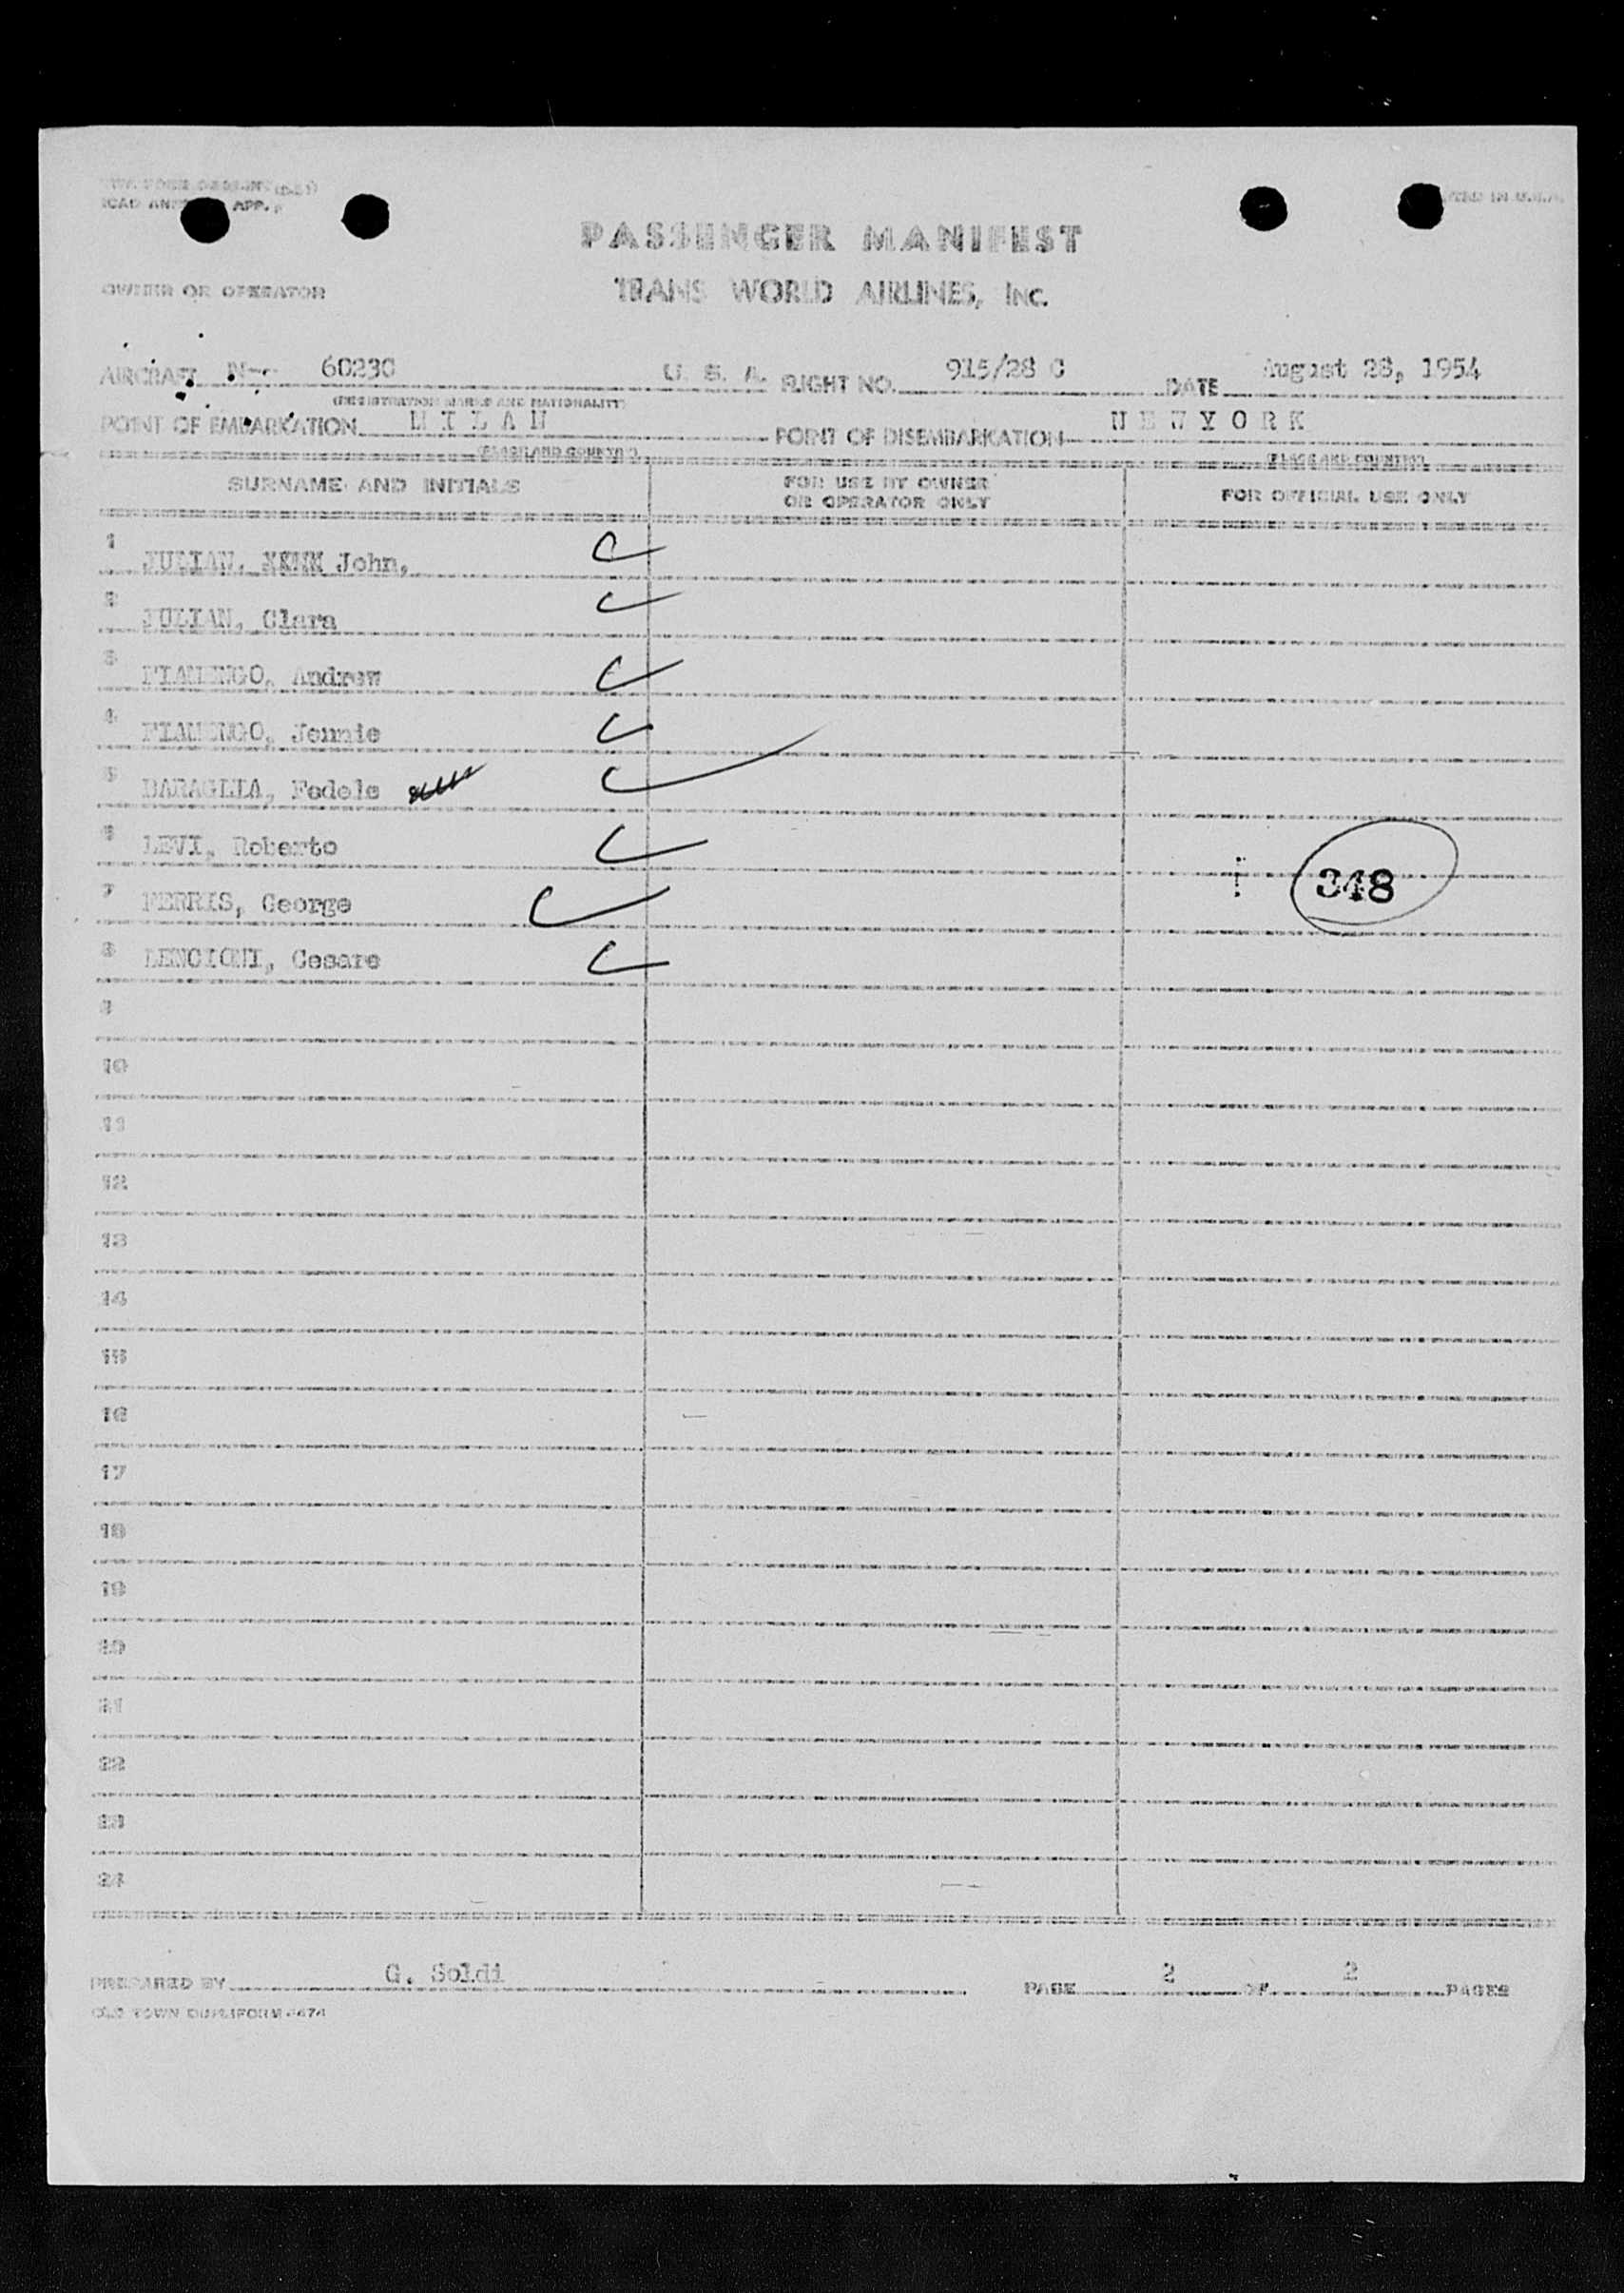 ICAO AN APP.
PASSENGER MANIFEST
OWNER OR OPERATOR TRANS WORLD AIRLINES, INC.
AIRCRAFT N-- 60230 U. S. A. FLIGHT NO. 915/28 C DATE August 28, 1954
(REGISTRATION MARKS AND NATIONALITY)
POINT OF EMBARKATION M I L A N POINT OF DISEMBARKATION N E W Y O R K
(PLACE AND COUNTRY) (PLACE AND COUNTRY)
SURNAME AND INITIALS FOR USE BY OWNER OR OPERATOR ONLY FOR OFFICIAL USE ONLY
1 JULIAN, John,
2 JULIAN, Clara
3 FIAMENGO, Andrew
4 FIAMENGO, Jennie
5 BARAGLIA, Fedele
6 LEVI, Roberto
348
7 FERRIS, George
8 LENCIONI, Cesare
9
10
11
12
13
14
15
16
17
18
19
20
21
22
23
24
PREPARED BY G. Soldi PAGE 2 OF 2 PAGES
OLD TOWN DUPLIFORM-